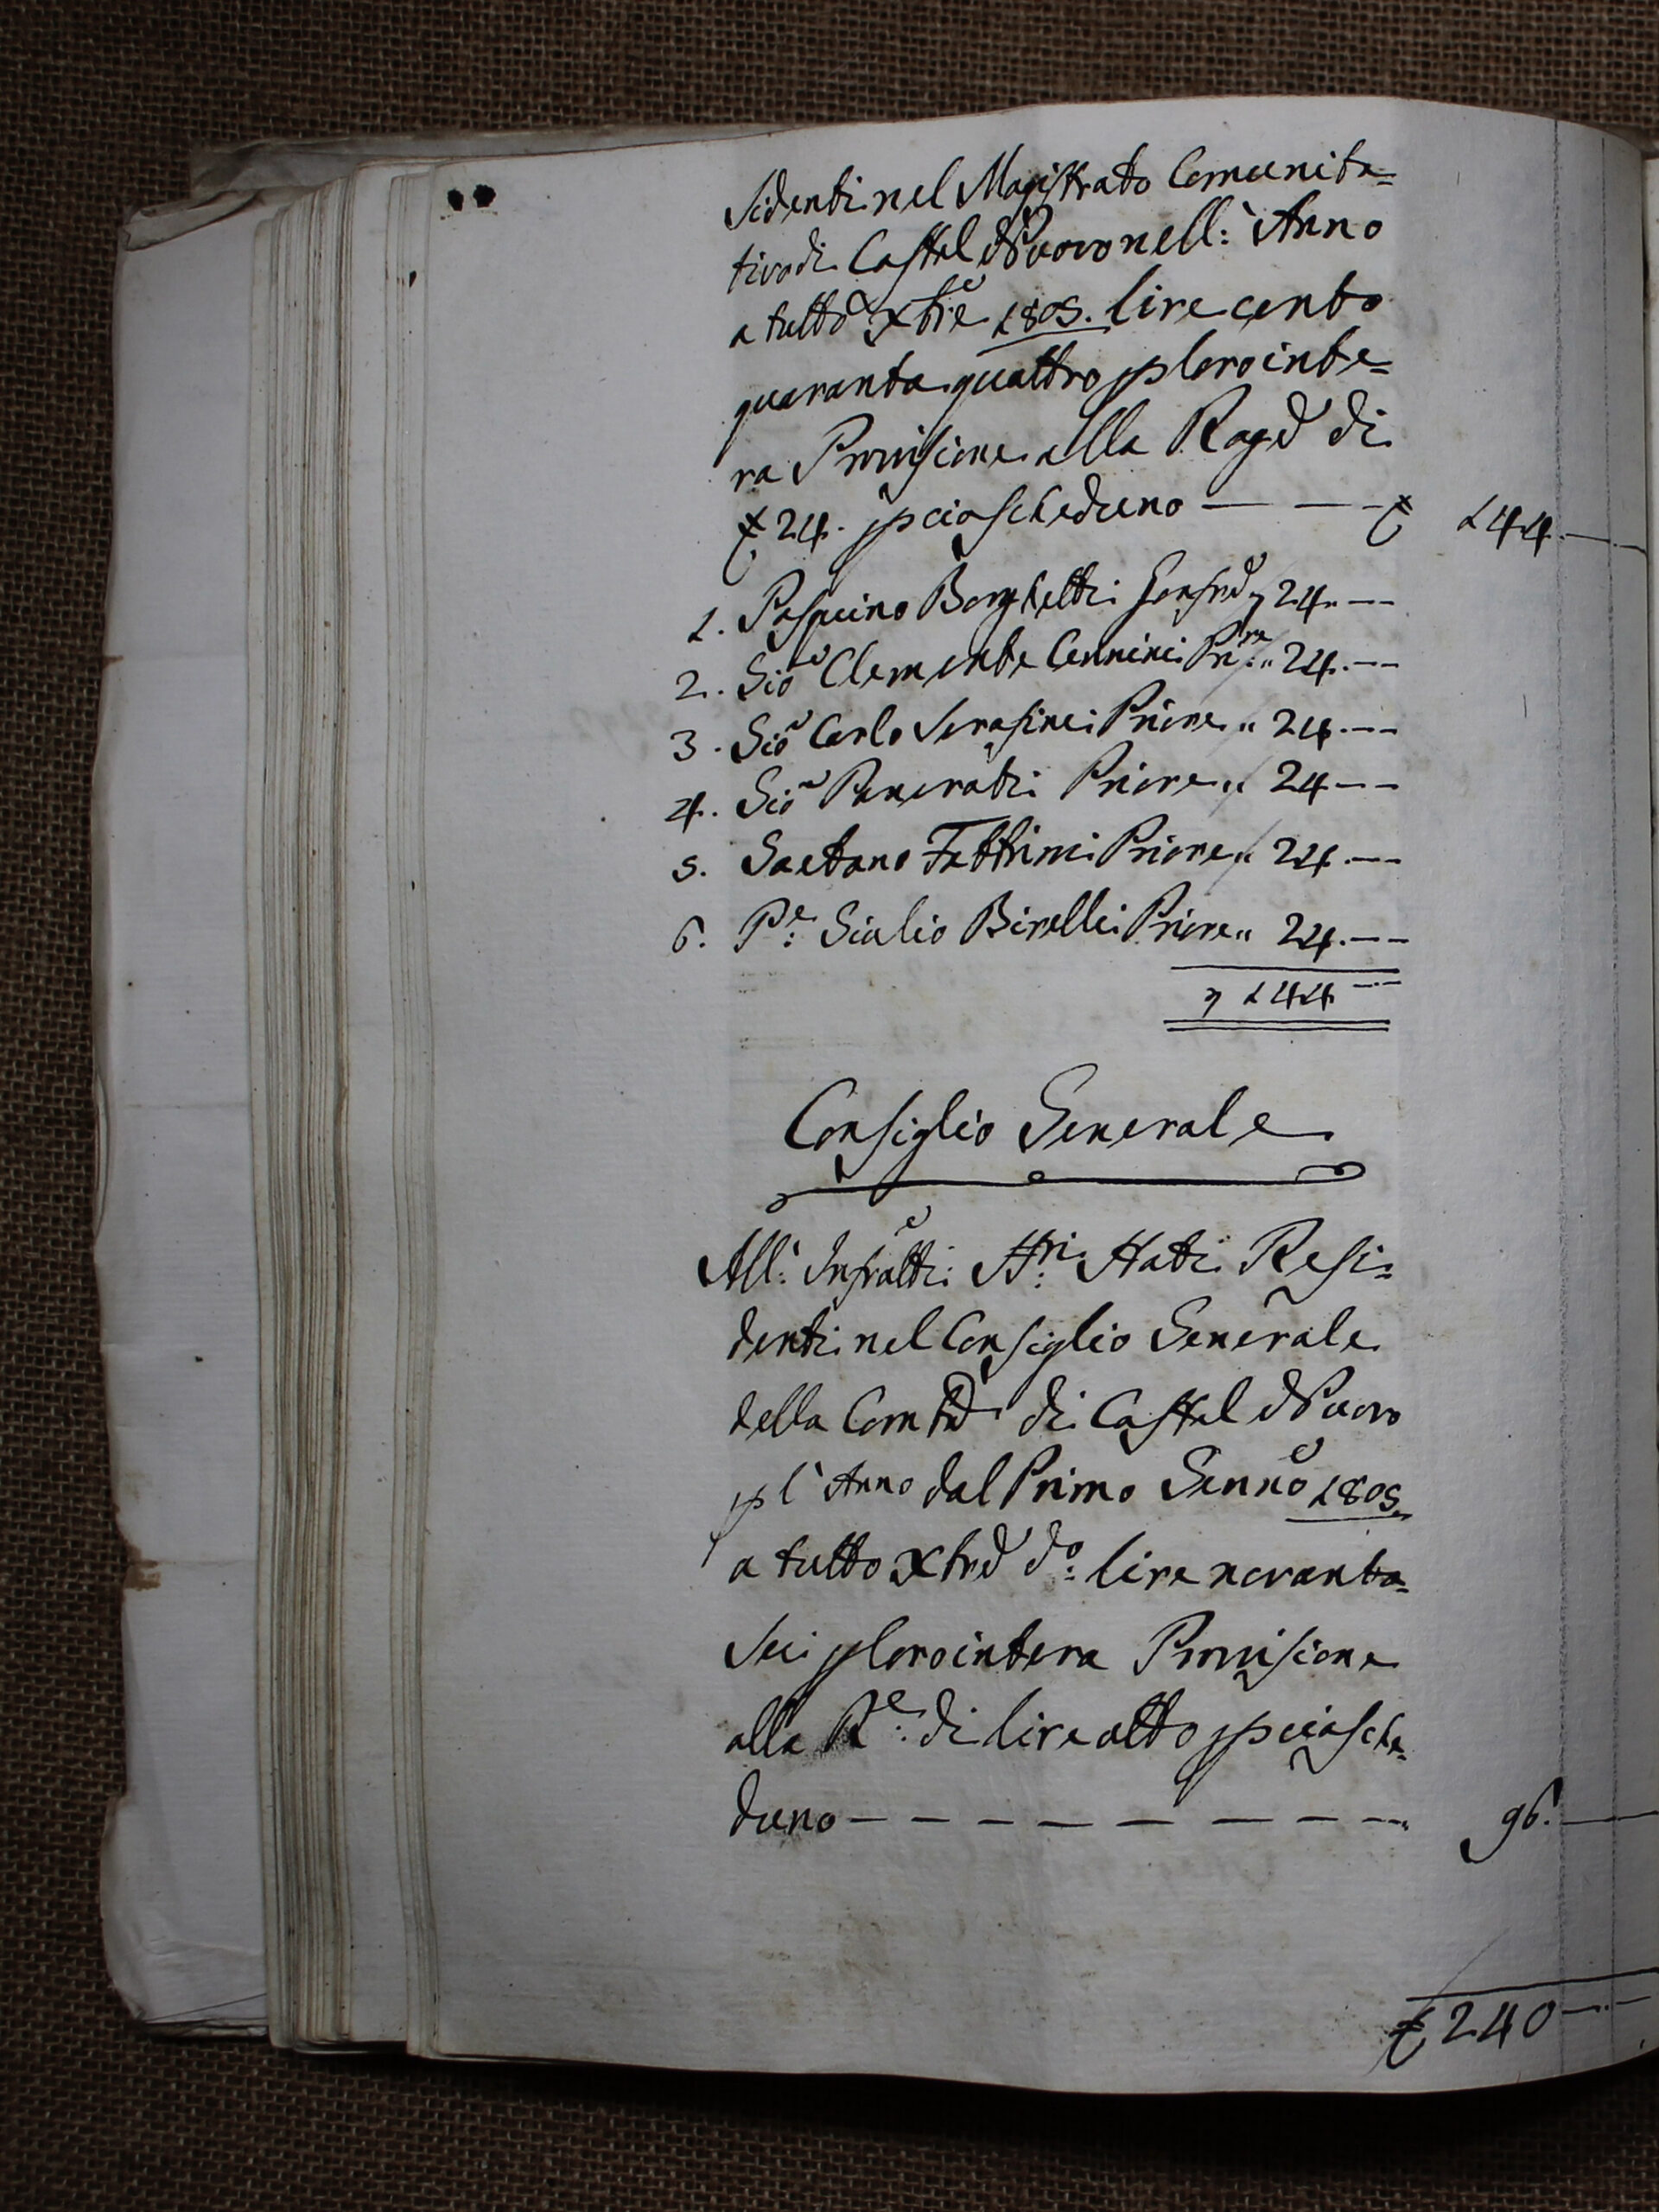 sidenti nel Magistrato Comunita=
tivo di Castel Nuovo nell: Anno
a tutto Xbre 1805. lire cento
quaranta quattro p loro inte=
ra Provisione alla Rag.e di
£ 24. p ciascheduno — — — £ 144.—
1. Pasquino Borghetti Gonf.re „ 24.——
2. Gio Clemente Cennini Pri:re „ 24.——
3. Gio Carlo Serafini Priore „ 24.——
4. Gio Pancrati Priore „ 24——
5. Gaetano Fattrini Priore „ 24.——
6. P:e Giulio Birelli Priore „ 24.——
„ 144 —.—
Consiglio Generale
All: Infratti S:ri Stati Resi=
denti nel Consiglio Generale
della Com.tà di Castel Nuovo
p l' Anno dal Primo Genno 1805.
a tutto Xbre d:o lire novanta=
sei p loro intera Provisione
alla R:e di lire otto p ciasche=
duno — — — — — — — — 96.—
£ 240 —.—